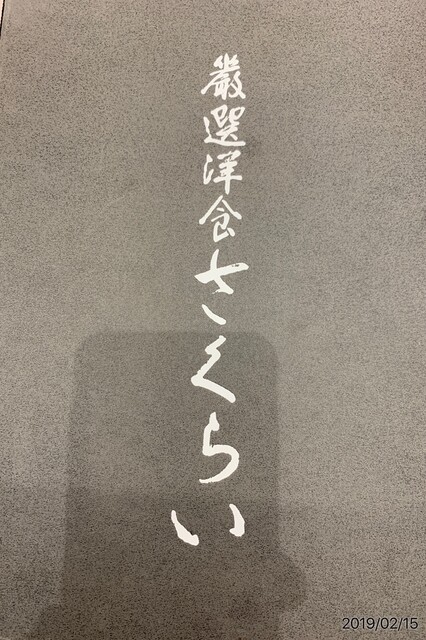 厳選洋食さくらい
2019/02/15